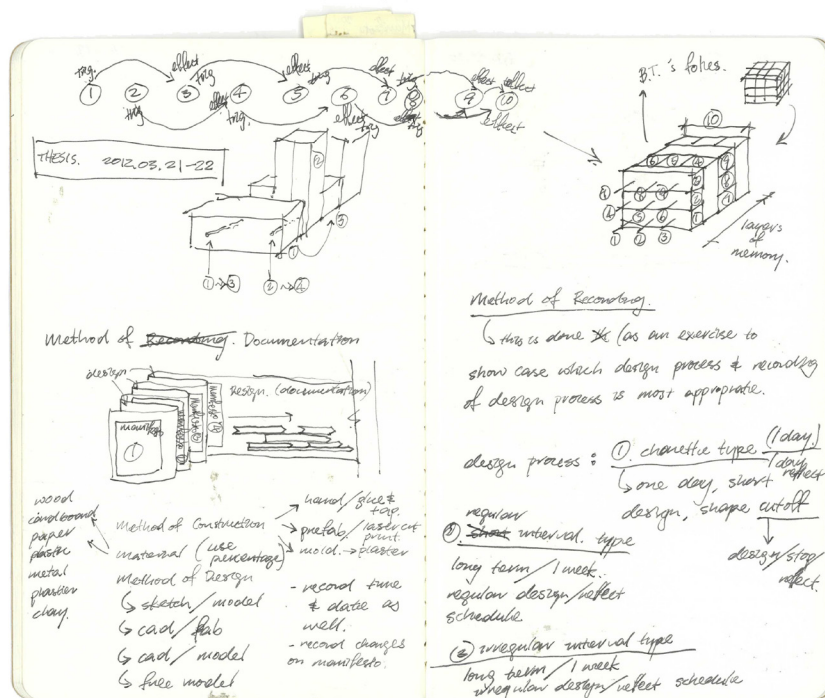 trig. effect effect effect effect effect
① ② ③ ④ ⑤ ⑥ ⑦ ⑧ ⑨ ⑩
trig trig trig. trig effect trig effect
THESIS. 2012.03.21-22
② ① ③
①→③ ②→④
Method of Recording. Documentation
design
Design. (documentation)
manifesto
①
wood
cardboard
paper
plastic
metal
plaster
clay.
Method of Construction
material (use percentage)
Method of Design
↳ sketch/model
↳ cad/fab
↳ cad/model
↳ free model
hand/glue & tap.
prefab/laser cut print.
mold. → plaster
- record time
& date as
well.
- record changes
on manifesto.
B.T.'s folies.
⑩
① ② ③
layers
of
memory.
Method of Recording.
↳ this is done (as an exercise to
show case which design process & recording
of design process is most appropriate.
design process : ① charette type (1 day.)
1 day reflect
↳ one day, short
design, shape cutoff
design/stop/
reflect.
regular
② short interval type
long term/1 week.
regular design/reflect
schedule
③ irregular interval type
long term/1 week
irregular design/reflect schedule